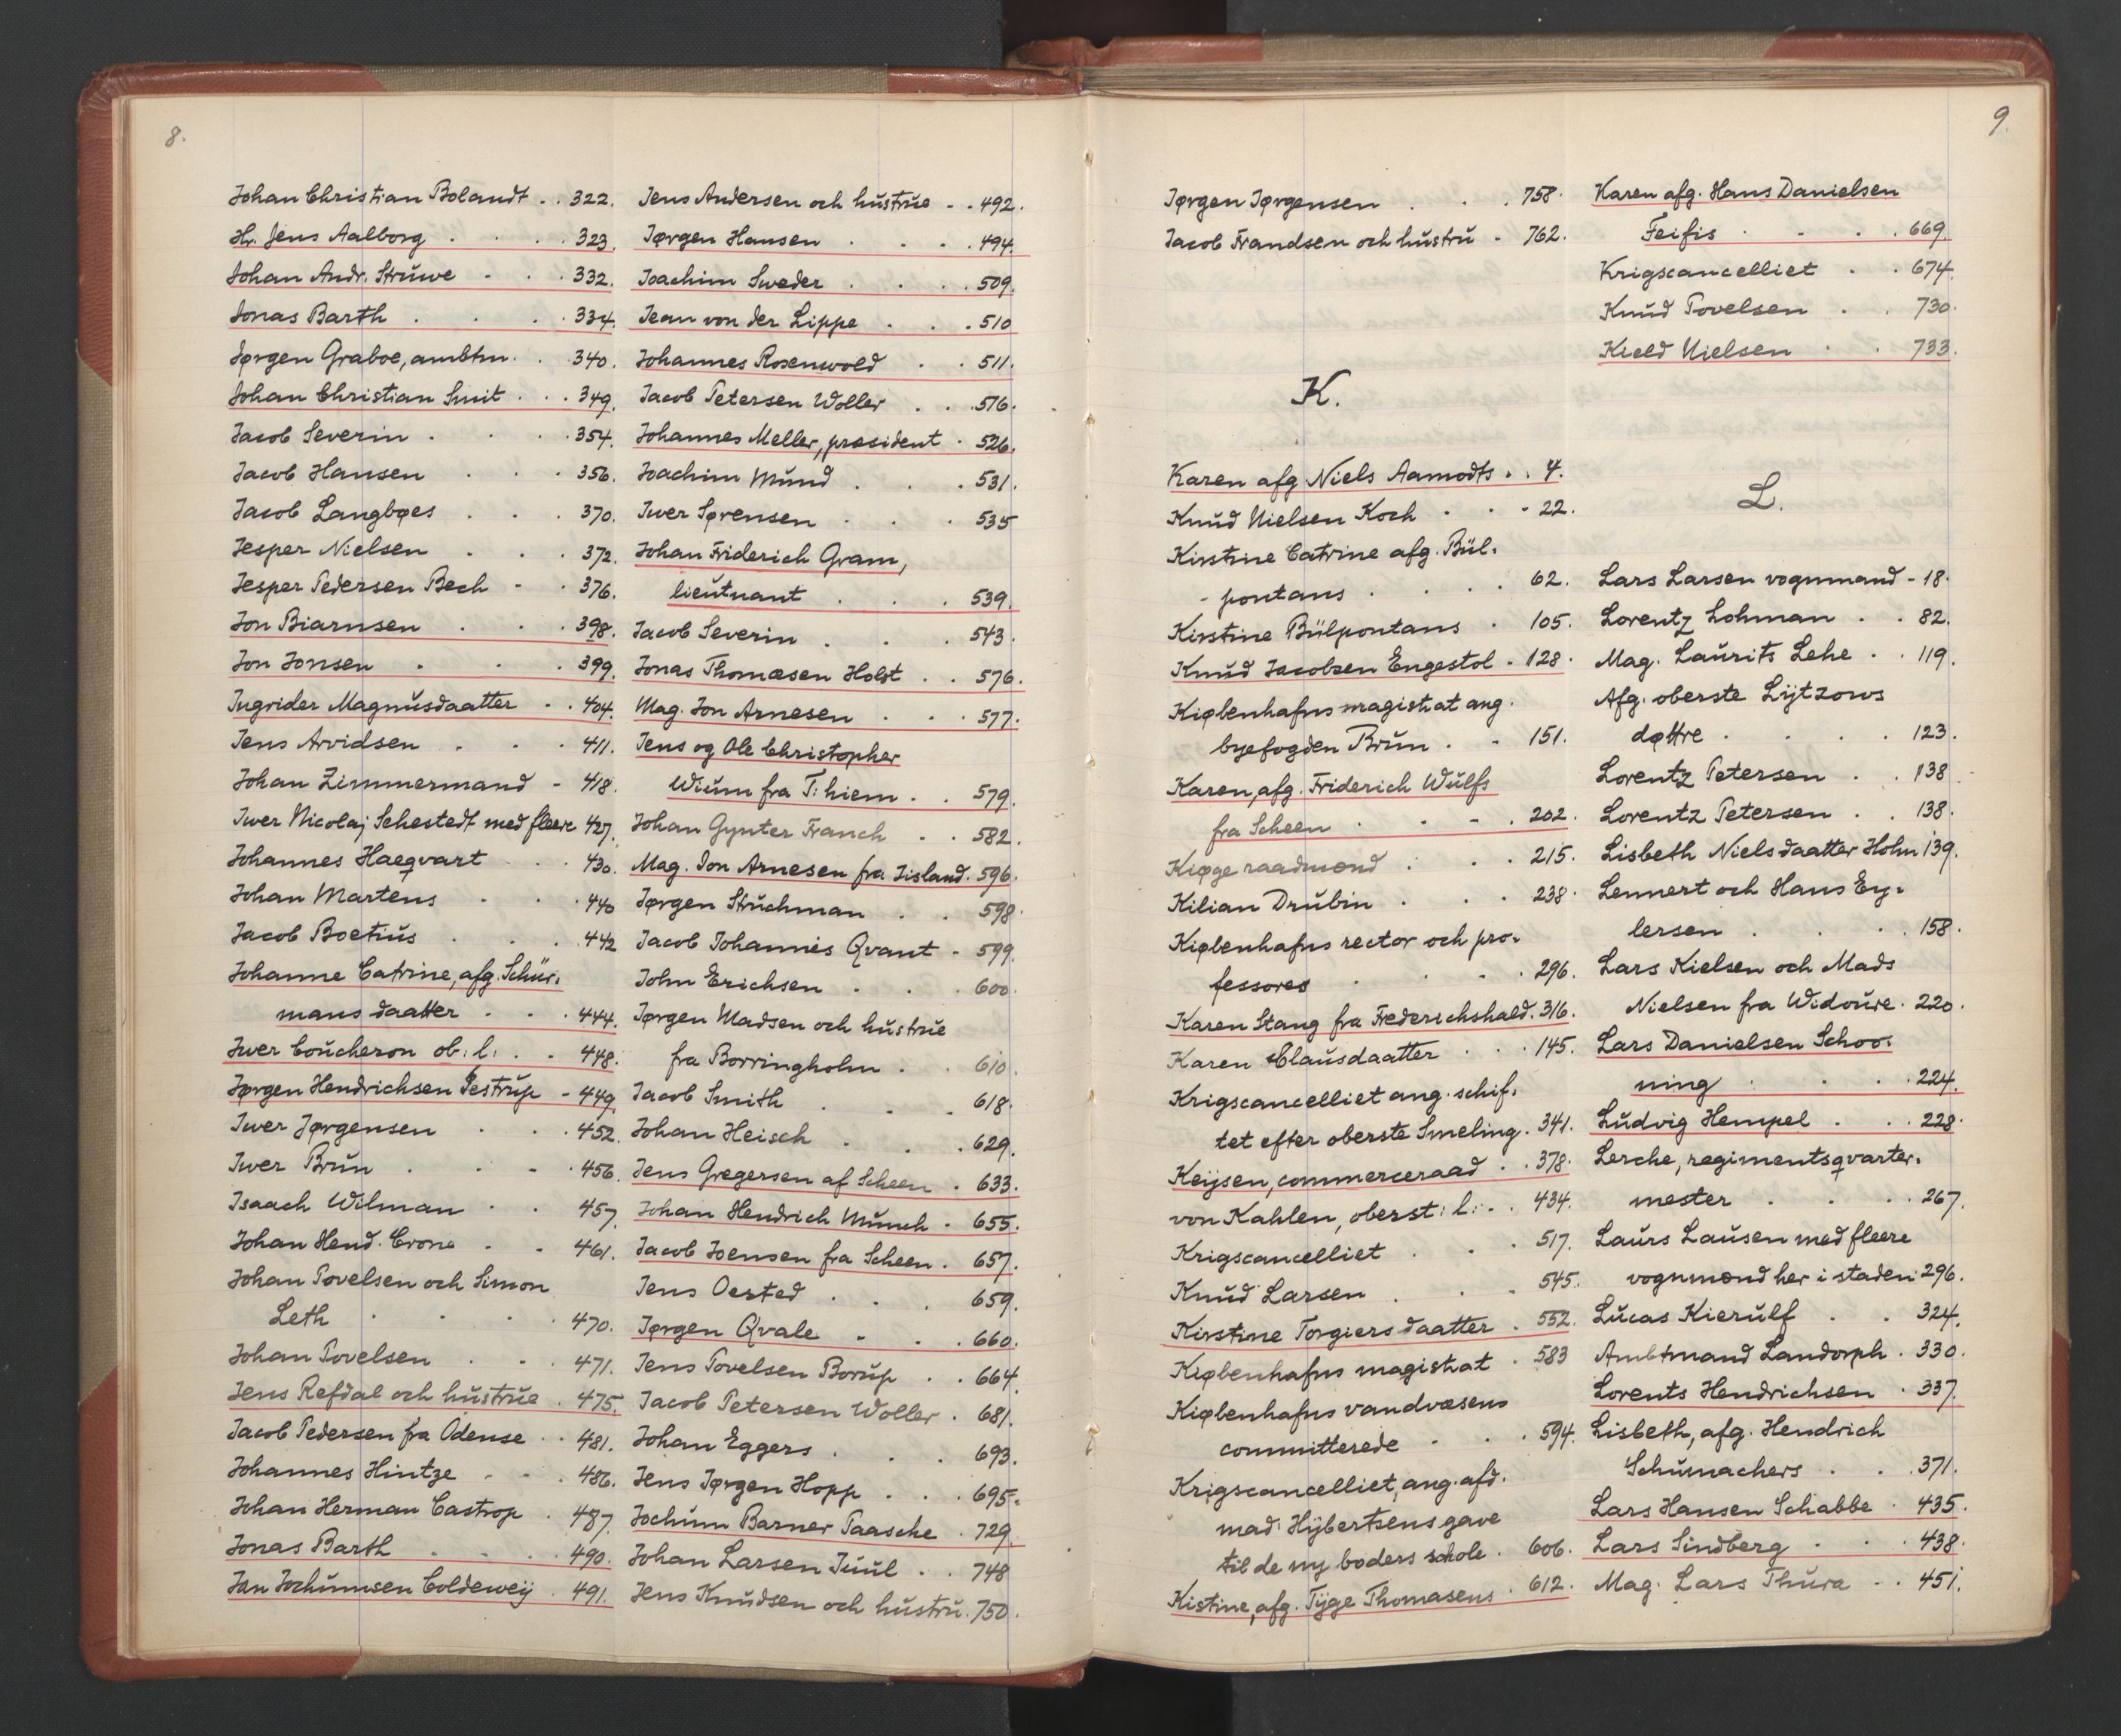 8.
Johan Christian Bolandt . . 322.
Hr. Jens Aalborg . . . . 323.
Johan Andr. Struwe - . . 332.
Jonas Barth . . . . 334.
Jørgen Graboe, ambtm. . 340.
Johan Christian Smit . . . 349.
Jacob Severin . . . . 354.
Jacob Hansen . . . 356.
Jacob Langbøes . . . 370.
Jesper Nielsen . . . 372.
Jesper Pedersen Bech - . 376.
Jon Biarnsen . . . 398.
Jon Jonsen . . . 399.
Ingrider Magnusdaatter . . 404.
Jens Arvidsen . . . 411.
Johan Zimmermand - 418.
Iver Nicolaj Sehestedt med fleere 427.
Johannes Haeqvart . . . 430.
Johan Martens . . . 440
Jacob Boetius . . . 442
Johanne Catrine, afg. Schür-
mans daatter . . . 444.
Iwer Coucheron ob: l: . . 448.
Jørgen Hendrichsen Sestrup - 449.
Iver Jørgensen . . . 452.
Iver Brun . . . . 456.
Isaach Wilman . . 457.
Johan Hend. Crone . . 461.
Johan Povelsen och Simon
Leth . . . . 470.
Johan Povelsen . . . 471.
Jens Refdal och hustrue . 475.
Jacob Pedersen fra Odense . . 481.
Johannes Hintze . . . 486.
Johan Herman Castrop . 487.
Jonas Barth . . . . 490.
Jan Jochumsen Coldeweij . 491.
Jens Andersen och hustrue . . 492.
Jørgen Hansen . . . . 494.
Joachim Sweder . . . . 509.
Jean von der Lippe . . . 510
Johannes Rosenwold . . 511.
Jacob Petersen Woller . . . 516.
Johannes Meller, præsident . 526.
Joachim Mund . . . 531.
Iwer Sørensen . . . 535
Johan Friderich Gram,
lieutnant . . . 539.
Jacob Severin . . . 543.
Jonas Thomæsen Holst . . 576.
Mag. Jon Arnesen . . . 577.
Jens og Ole Christopher
Wium fra T: hiem . . 579.
Johan Gynter Franch . . 582.
Mag. Jon Arnesen fra Jisland. 596.
Jørgen Struchman . . 598.
Jacob Johannes Qvant - 599.
John Erichsen . . . 600.
Jørgen Madsen och hustrue
fra Borringholm . . 610.
Jacob Smith . . . 618.
Johan Heisch . . . 629.
Jens Gregersen af Scheen . 633.
Johan Hendrich Munch . 655.
Jacob Joensen fra Scheen . 657.
Jens Oested . . . 659.
Jørgen Qvale . . . 660.
Jens Povelsen Borup . . 664.
Jacob Petersen Woller . 681.
Johan Eggers . . . 693.
Jens Jørgen Hopp . . . 695.
Jochum Barner Paasche . 729.
Johan Larsen Juul . . 748
Jens Knudsen och hustru. 750.
9.
Jørgen Jørgensen . . . 758.
Jacob Frandsen och hustru . 762.
K.
Karen afg. Niels Aamodts . . 4.
Knud Nielsen Koch . . . 22.
Kirstine Catrine afg. Bül-
pontans . . . . 62.
Kirstine Bülpontans . 105.
Knud Jacobsen Engestol . 128.
Kiøbenhafns magistrat ang.
byefogden Brun . . 151.
Karen, afg. Friderich Wulfs
fra Scheen . . . . 202.
Kiøge raadmænd . . . 215.
Kilian Drubin . . . 238.
Kiøbenhafns rector och pro-
fessores . . . 296.
Karen Stang fra Frederichshald. 316.
Karen Clausdaatter . . . 145.
Krigscancelliet ang. schif-
tet efter oberste Smeling . 341.
Keijsen, commerceraad . . 378.
von Kahlen, oberst: l: . . 434.
Krigscancelliet . . . 517.
Knud Larsen . . . 545.
Kirstine Torgiersdaatter . 552.
Kiøbenhafns magistrat . 583
Kiøbenhafns vandvæsens
committerede . . . 594.
Krigscancelliet, ang. afd.
mad: Hijbertsens gave
til de ny boders schole . 606.
Kistine, afg. Tÿge Thomasens . 612.
Karen afg. Hans Danielsen
Feifis . . . . 669.
Krigscancelliet . . 674.
Knud Povelsen . . 730.
Kield Nielsen . . 733.
L.
Lars Larsen vognmand - 18.
Lorentz Lohman . . 82.
Mag. Laurits Lehe . . 119.
Afg. oberste Lÿtzows
døttre . . . . 123.
Lorentz Petersen . . 138
Lorentz Petersen . . 138.
Lisbeth Nielsdaatter Holm 139.
Lennert och Hans Ey-
lersen . . . . 158.
Lars Kielsen och Mads
Nielsen fra Widoure . 220.
Lars Danielsen Schoo-
ning . . . . 224.
Ludvig Hempel . . . 228.
Lerche, regimentsqvarter-
mester . . . . 267.
Laurs Lausen med fleere
vognmænd her i staden 296.
Lucas Kierulf . . 324.
Ambtmand Landorph . 330.
Lorents Hendrichsen . 337.
Lisbeth, afg. Hendrich
Schumachers . . . 371.
Lars Hansen Schabbe . 435.
Lars Lindberg . . . 438.
Mag. Lars Thura . . 451.